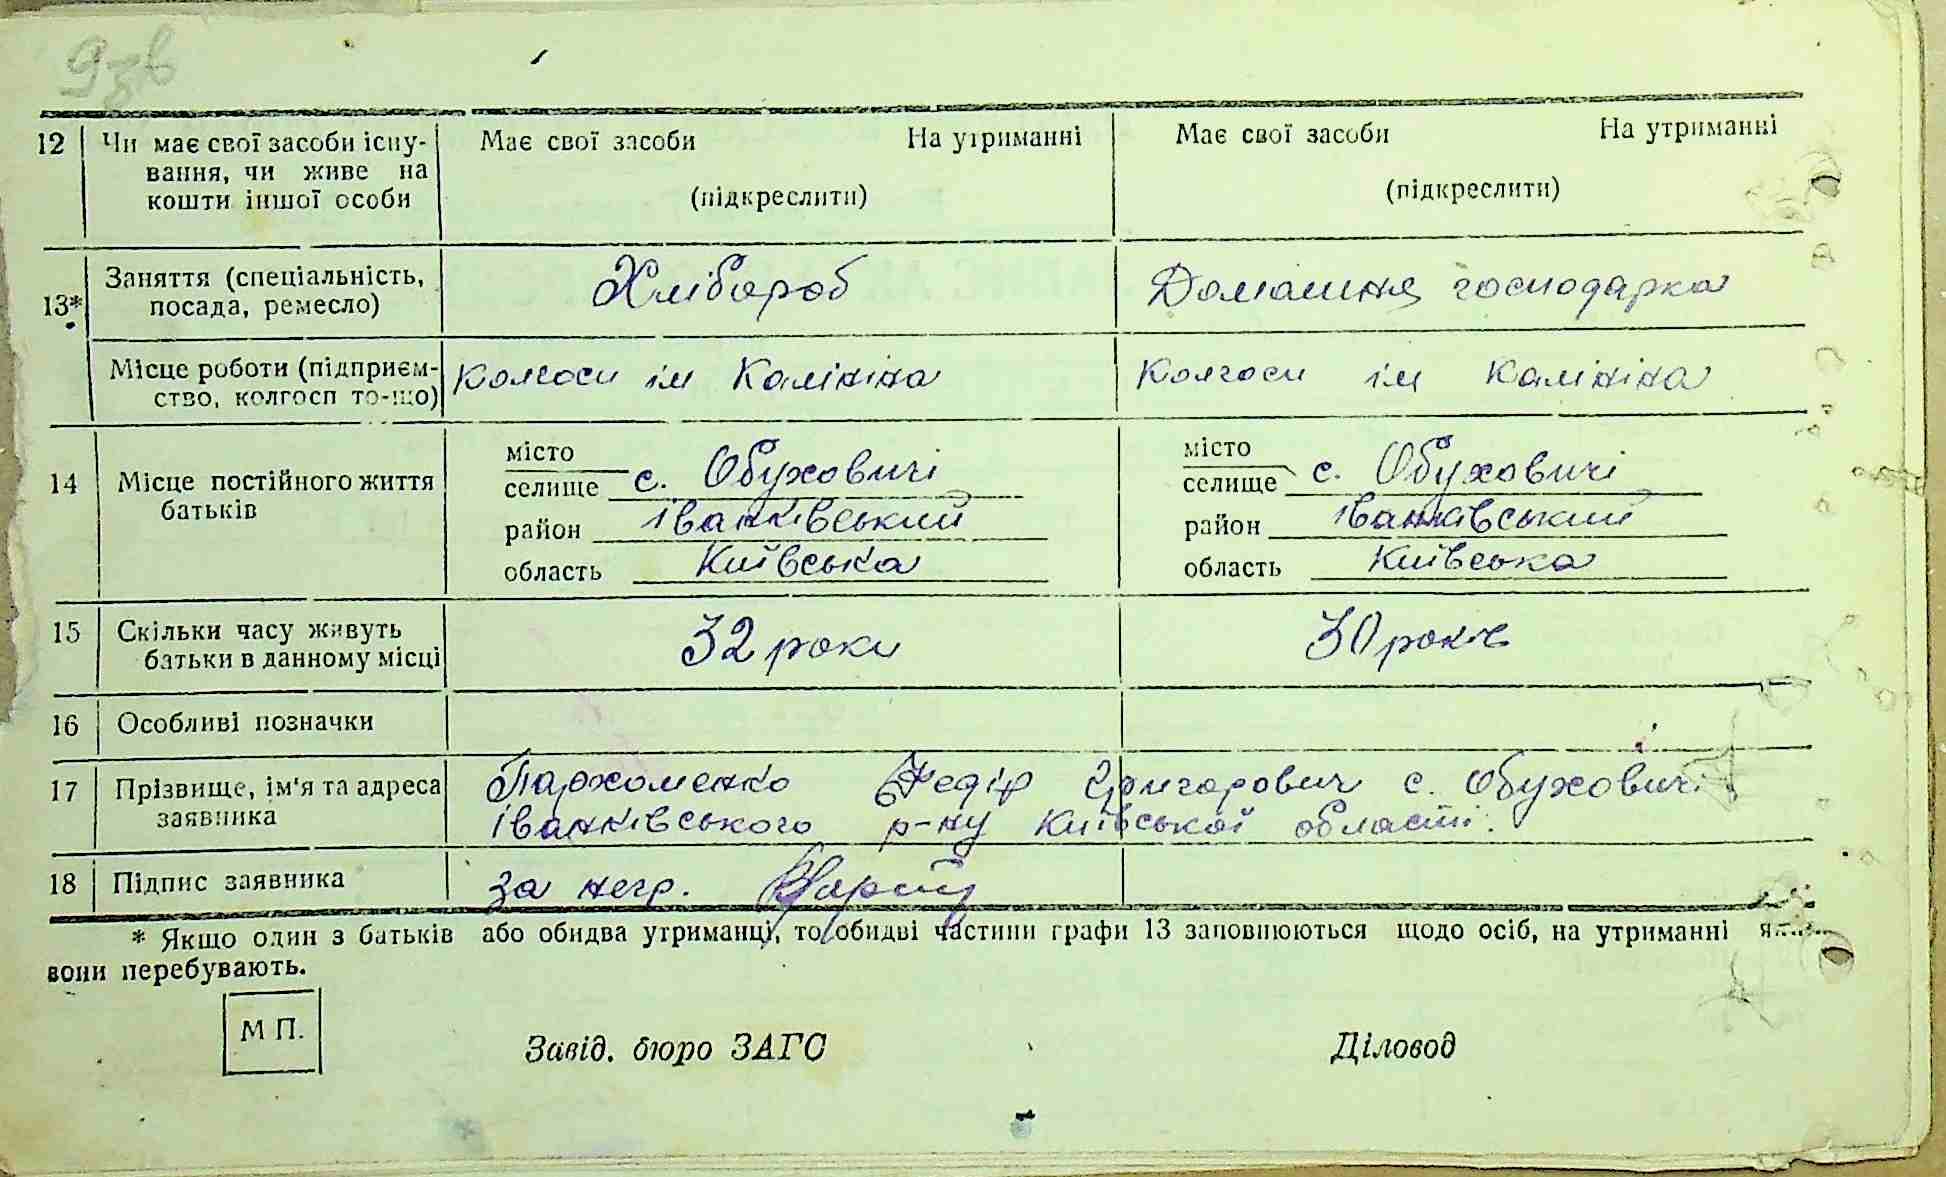 9зв
12 Чи має свої засоби існу- Має свої засоби На утриманні Має свої засоби На утриманні
вання, чи живе на
кошти іншої особи (підкреслити) (підкреслити)
13* Заняття (спеціальність, Хлібороб Домашня господарка
посада, ремесло)
Місце роботи (підприєм- Колгосп ім Калініна Колгосп ім Калініна
ство, колгосп то-що)
місто місто
14 Місце постійного життя селище с. Обуховичі селище с. Обуховичі
батьків район Іванківський район Іванківський
область Київська область Київська
15 Скільки часу живуть 32 роки 30 років
батьки в данному місці
16 Особливі позначки
17 Прізвище, ім'я та адреса Пархоменко Федір Григорович с. Обуховичі
заявника Іванківського р-ну Київської області.
18 Підпис заявника за негр.
* Якщо один з батьків або обидва утриманці, то обидві частини графи 13 заповнюються щодо осіб, на утриманні
вони перебувають.
М П. Завід. бюро ЗАГС Діловод